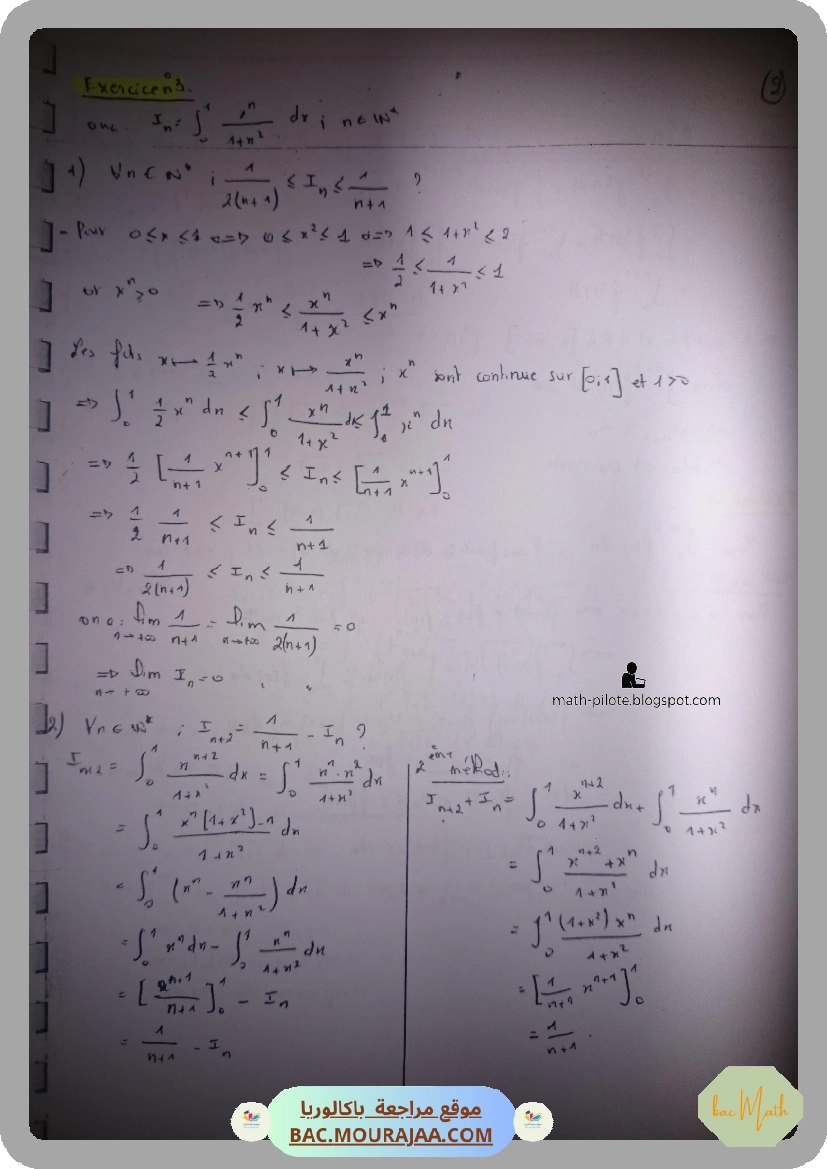 Exercice n°3.
(2)
on c. Iₙ = ∫₀¹ xⁿ/(1+x²) dx ; n ∈ ℕ*
1) ∀n ∈ ℕ* ; 1/(2(n+1)) ≤ Iₙ ≤ 1/(n+1) ?
- Pour 0 ≤ x ≤ 1 <=> 0 ≤ x² ≤ 1 <=> 1 ≤ 1+x² ≤ 2
=> 1/2 ≤ 1/(1+x²) ≤ 1
or xⁿ ≥ 0 => 1/2 xⁿ ≤ xⁿ/(1+x²) ≤ xⁿ
Les fcts x ↦ 1/2 xⁿ ; x ↦ xⁿ/(1+x²) ; xⁿ sont continue sur [0;1] et 1>0
=> ∫₀¹ 1/2 xⁿ dx ≤ ∫₀¹ xⁿ/(1+x²) dx ≤ ∫₀¹ xⁿ dx
=> 1/2 [1/(n+1) xⁿ⁺¹]₀¹ ≤ Iₙ ≤ [1/(n+1) xⁿ⁺¹]₀¹
=> 1/2 1/(n+1) ≤ Iₙ ≤ 1/(n+1)
=> 1/(2(n+1)) ≤ Iₙ ≤ 1/(n+1)
on a : lim n→+∞ 1/(n+1) = lim n→+∞ 1/(2(n+1)) = 0
=> lim n→+∞ Iₙ = 0
math-pilote.blogspot.com
2) ∀n ∈ ℕ* ; Iₙ₊₂ = 1/(n+1) - Iₙ ?
Iₙ₊₂ = ∫₀¹ xⁿ⁺²/(1+x²) dx = ∫₀¹ xⁿ·x²/(1+x²) dx
= ∫₀¹ (xⁿ(1+x²)-xⁿ)/(1+x²) dx
= ∫₀¹ (xⁿ - xⁿ/(1+x²)) dx
= ∫₀¹ xⁿ dx - ∫₀¹ xⁿ/(1+x²) dx
= [xⁿ⁺¹/(n+1)]₀¹ - Iₙ
= 1/(n+1) - Iₙ
2 ème méthod :
Iₙ₊₂ + Iₙ = ∫₀¹ xⁿ⁺²/(1+x²) dx + ∫₀¹ xⁿ/(1+x²) dx
= ∫₀¹ (xⁿ⁺²+xⁿ)/(1+x²) dx
= ∫₀¹ (1+x²)xⁿ/(1+x²) dx
= [1/(n+1) xⁿ⁺¹]₀¹
= 1/(n+1) .
موقع مراجعة باكالوريا
BAC.MOURAJAA.COM
bac Math